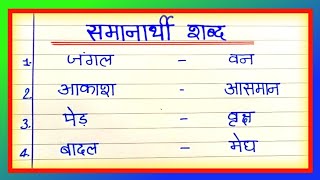 समानार्थी शब्द
1. जंगल - वन
2. आकाश - आसमान
3. पेड़ - वृक्ष
4. बादल - मेघ